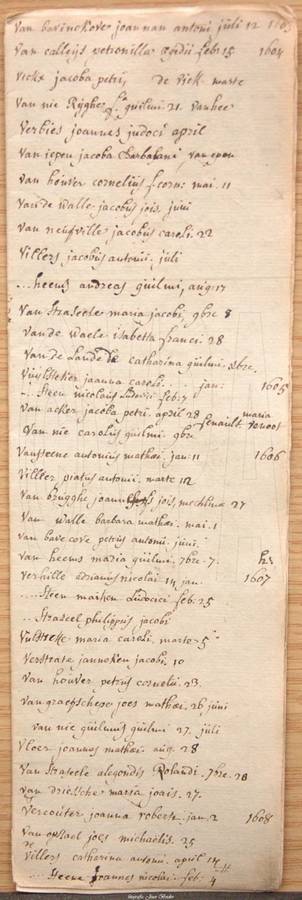 Van bavinckove joannan antoni juli 12 1603
Van callijs petronilla egidii feb: 15 1604
Vicke jacoba petri, de Vick marte
Van nie guilmi 21.
Verbies joannes judoci april
Van iepen jacoba
Van houver cornelius f corn: mai. 11
Van de Walle jacobus jois. juni
Van neufville jacobus caroli. 22
Villers jacobus antonii. juli
... heems andreas guilmi, aug: 17
Van Straseele maria jacobi, 9bre 8
Van de Waele isabetta franci 28
Van de Lande catharina guilmi. xbre.
joanna caroli. jan: 1605
... Steen nicolaus Ludovici feb: 4
Van acker jacoba petri. april 28 maria
Van nie carolus guilmi. 9br
antonius mathæi. jan: 11 1606
Viller piatus antonii. marte 12
Van brugghe joannes jois, 27
Van Walle barbara mathæi. mai. 1
Van bave cove petrus antonii. juni.
Van heems maria guilmi. 7bre. 7.
Verhille adrianus nicolai. 14 jan. 1607
... Steen maiken Ludovici feb: 25
... Straseel philippus jacobi
maria caroli. marte 5
Verstrate janneken jacobi. 10
Van houver petrus cornelii. 23.
Van graefschepe joes mathæi. 26 juni
Van nie guilmus guilmi 27. juli
Vloer joannes mathæi. aug. 28
Van Straseele alegondis Rolandi. 7bre. 28
Van driessche maria joais. 27.
Vercouter joanna roberti. jan. 2 1608
Van opstael joes michaelis. 25
Villers catharina antonii. april 14
... Steene joannes nicolai. feb. 4